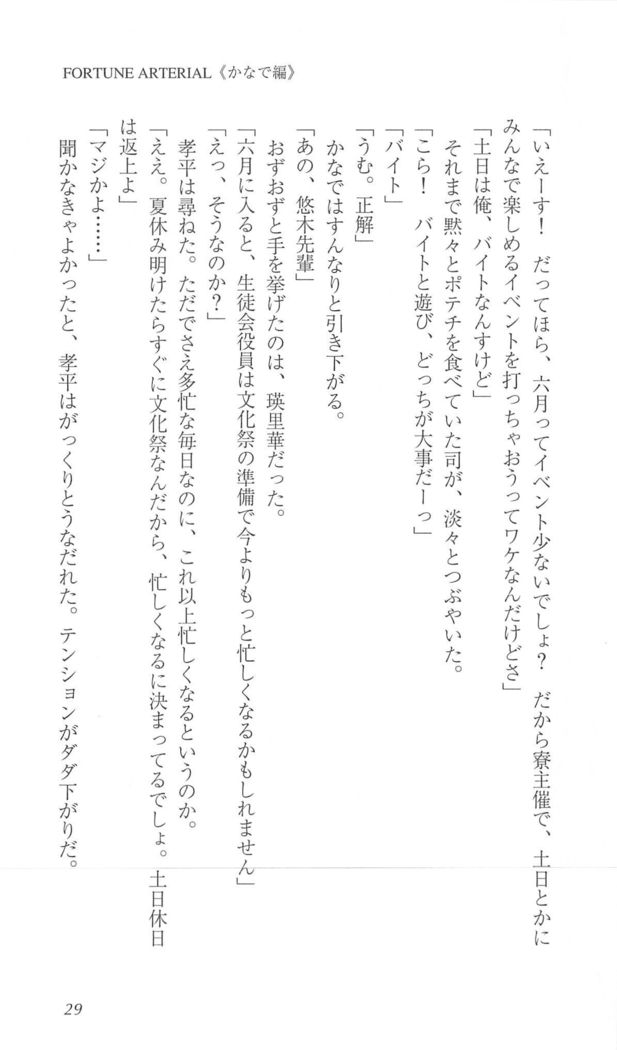 FORTUNE ARTERIAL《かなで編》
「いえーす！　だってほら、六月ってイベント少ないでしょ？　だから寮主催で、土日とかに
みんなで楽しめるイベントを打っちゃおうってワケなんだけどさ」
「土日は俺、バイトなんすけど」
それまで黙々とポテチを食べていた司が、淡々とつぶやいた。
「こら！　バイトと遊び、どっちが大事だーっ」
「バイト」
「うむ。正解」
かなではすんなりと引き下がる。
「あの、悠木先輩」
おずおずと手を挙げたのは、瑛里華だった。
「六月に入ると、生徒会役員は文化祭の準備で今よりもっと忙しくなるかもしれません」
「えっ、そうなのか？」
孝平は尋ねた。ただでさえ多忙な毎日なのに、これ以上忙しくなるというのか。
「ええ。夏休み明けたらすぐに文化祭なんだから、忙しくなるに決まってるでしょ。土日休日
は返上よ」
「マジかよ……」
聞かなきゃよかったと、孝平はがっくりとうなだれた。テンションがダダ下がりだ。
29